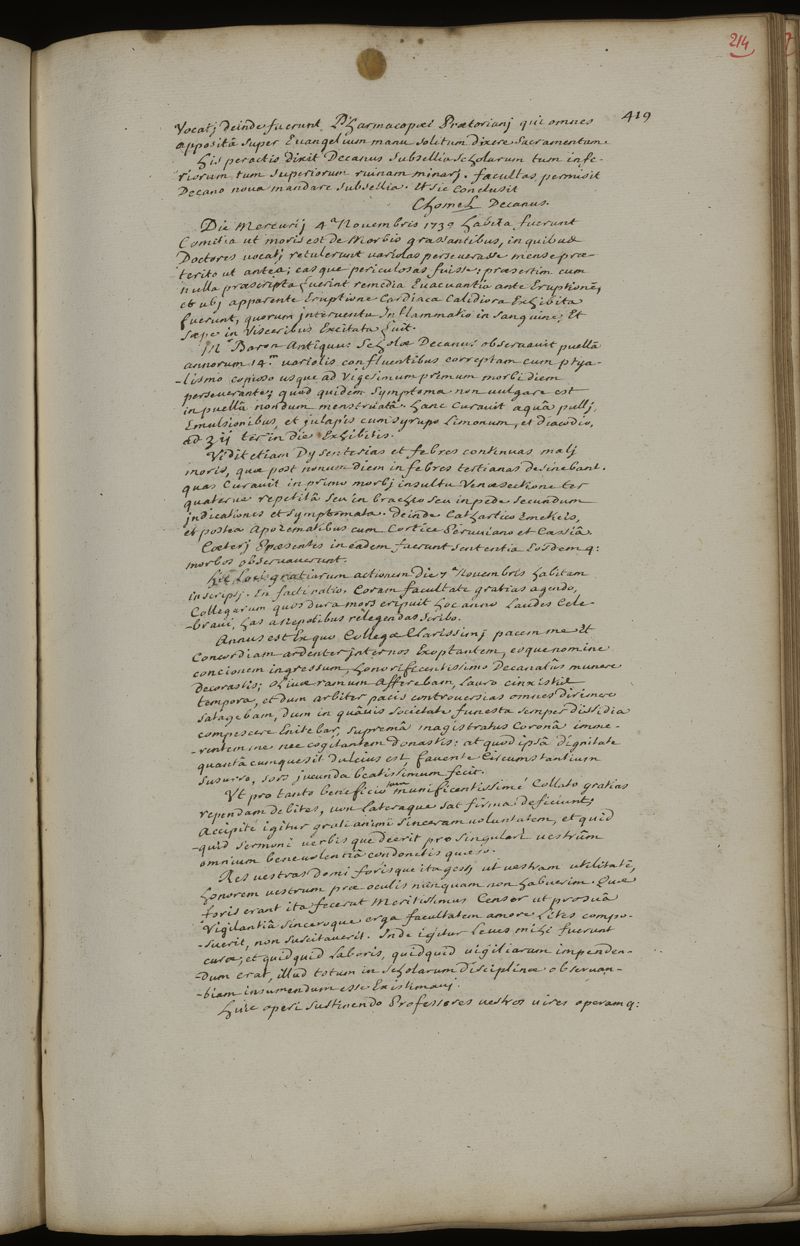 214
419
Vocatj deinde fuerunt Pharmacopœi Prætorianj qui omnes
apposità super Euangelium manu solitum dixere Sacramentum.
His peractis dixit Decanus Subsellia scholarum tum infe-
riorum tum superiorum ruinam minarj. facultas permisit
Decano noua mandare subsellia. Et sic conclusit
Chomel Decanus.
Die Mercurij 4a Nouembris 1739 habita fuerunt
Comitia ut moris est de Morbis grassantibus, in quibus
Doctores uocatj retulerunt uariolas perseuerasse mense præ-
terito ut antea; eas que periculosas fuisse, præsertim cum
nulla præscripta fuerint remedia Euacuantia ante Eruptionē,
et ubj apparente Eruptione Cardiaca Calidiora Exhibita
fuerunt, quorum interuentu Inflammatio in Sanguine, Et
sæpe in Visceribus Excitata fuit.
Mr Baron Antiquus Scholæ Decanus obseruauit puellā
annorum 14m uariolis confluentibus correptam cum ptya-
-lismo copioso usque ad Vigesimum primum morbi diem
perseuerante; quod quidem symptoma non uulgare est
in puellâ nondum menstruatâ. hanc Curauit aquâ pullj,
Emulsionibus, et julapis cum syrupo Limonum, et diacodio,
ad ʒ ij ter in die Exhibitis.
Vidit etiam Dysenterias et febres continuas malj
moris, quæ post nonum diem in febres tertianas desinebant.
quas Curauit in primo morbj insultu Venæsectione ter
quaterue repetitâ seu in brachio seu in pede secundum
indicationes et symptomata. Deinde Cathartico Emeticis,
et postea Apozematibus cum Cortice Peruuiano et Cassiâ.
Cæterj Præsentes in eadem fuerunt sententia Eosdemq:
morbos obseruauerunt.
Hic Loci gratiarum actionem Die 7a Nouembris habitam
inscripsj. En facti ratio. Coram facultate gratias agendo,
Collegarum quos dura mors eripuit hoc anno Laudes Cele-
-braui, has a nepotibus relegendas scribo.
Annus est Ex quo Collegæ Clarissimj pacem me Et
Concordiam ardenter internos Exoptantem, eoque nomine
concionem ingressum, honorificentissimo Decanatûs munere
decorastis; Oliuæ ramum Afferebam, Lauro cinxistis
tempora, et dum arbiter pacis controuersias omnes dirimere
satagebam, dum in quâuis societate funesta semper dissidia
compescere Enitebar, supremâ magistratus Coronâ imme-
-rentem me nec cogitantem donastis: at quod ipsâ dignitate
quantacumque sit Dulcius est fauente Circumstantium
susurro, sors jucunda beatissimum fecit.
Vt pro tanto beneficio tam munificentissimè Collato gratias
rependam debites, uox lateraque sat firma deficiunt;
Accipite igitur grati animi sinceram uoluntatem, et quid
-quid sermoni uerbisque deerit pro singulari uestrûm
omnium beneuolentiâ condonetis quæso.
Res uestras domi forisque ita gessj ut uestram utilitatē,
honorem uestrum præ oculis nunquam non habuerim. Quæ
foris erant ita fecerat Meritissimus Censor ut pro suâ
Vigilantiâ sinceroque erga facultatem amore Lites compo-
-suerit, non suscitauerit. Inde igitur Leues mihi fuerunt
curæ; et quidquid Laboris, quidquid uigiliarum impenden-
-dum erat, illud totum in scholarum disciplinæ obseruan-
-tiam insumendum esse Existimauj.
Huic operi sustinendo Professores uestros uires operamq: